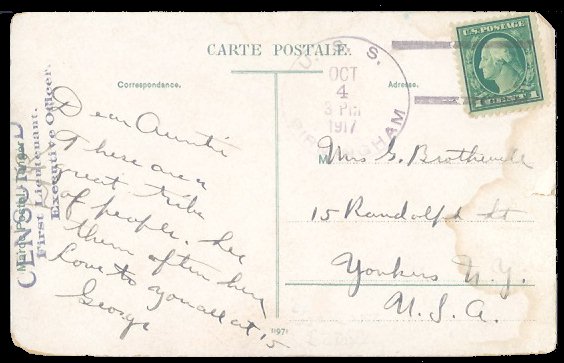 CARTE POSTALE.
Correspondance.
Adresse.
U. S. S.
OCT
4
3 PM
1917
BIRMINGHAM
U.S. POSTAGE
1 CENT 1
Dear Auntie
These are a
great tribe
of people. See
them often here
Love to you all at 15
George
M rs G.
15 Randolph St
Yonkers N.Y.
U.S.A.
11971
CENSORED
First Lieutenant.
Executive Officer.